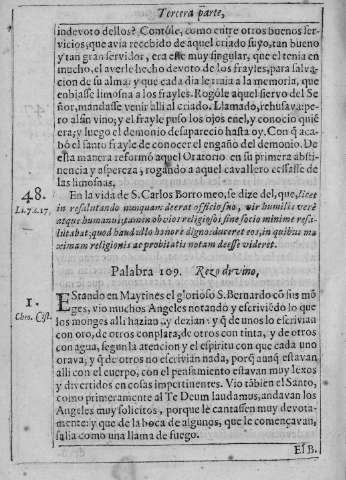 Tercera parte,
indevoto dellos? Contóle, como entre otros buenos ser-
vicios, que avia recebido de aquel criado suyo, tan bueno
y tan gran servidor, era este muy singular, que el tenia en
mucho, el averle hecho devoto de los frayles, para salva-
cion de su alma: y que cada dia le traia a la memoria, que
enbiasse limosna a los frayles. Rogóle aquel siervo del Se
ñor, mandasse venir alli al criado. Llamadó, rehusava: pe-
ro al fin vino; y el frayle puso los ojos enel, y conocio quié
era; y luego el demonio desaparecio hasta oy. Con q̃ acá-
bó el santo frayle de conocer el engaño del demonio. De
esta manera reformó aquel Oratorio en su primera absti-
nencia y aspereza, rogando a aquel cavallero cessasse de
las limosnas,
48.
Li. 7. c. 17.
En la vida de S. Carlos Borromeo, se dize del, que, licet
in resalutando nunquam deerat officiosus, vir humilis verè
atque humanus; tamen obvios religiosos sine socio minime resa-
lutabat; quod haud ullo honore dignos duceret eos, in quibus ma
ximam religionis ac probitatis notam deesse videret.
Palabra 109. Rezo divino,
I.
Chro. Cist.
Estando en Maytines el glorioso S. Bernardo cõ sus mõ
ges, vio muchos Angeles notando y escriviẽdo lo que
los monges alli hazian y dezian: y q̃ de unos lo escrivian
con oro, de otros con plara, de otros con tinta, y de otros
con agua, segun la atencion y el espiritu con que cada uno
orava; y q̃ de otros no escrivian nada, porq̃ aunq̃ estavan
alli con el cuerpo, con el pensamiento estavan muy lexos
y divertidos en cosas impertinentes. Vio tãbien el Santo,
como primeramente al Te Deum laudamus, andavan los
Angeles muy solicitos, porque le cantassen muy devota-
mente: y que de la boca de algunos, que le començavan,
salia como una llama de fuego.
El B.